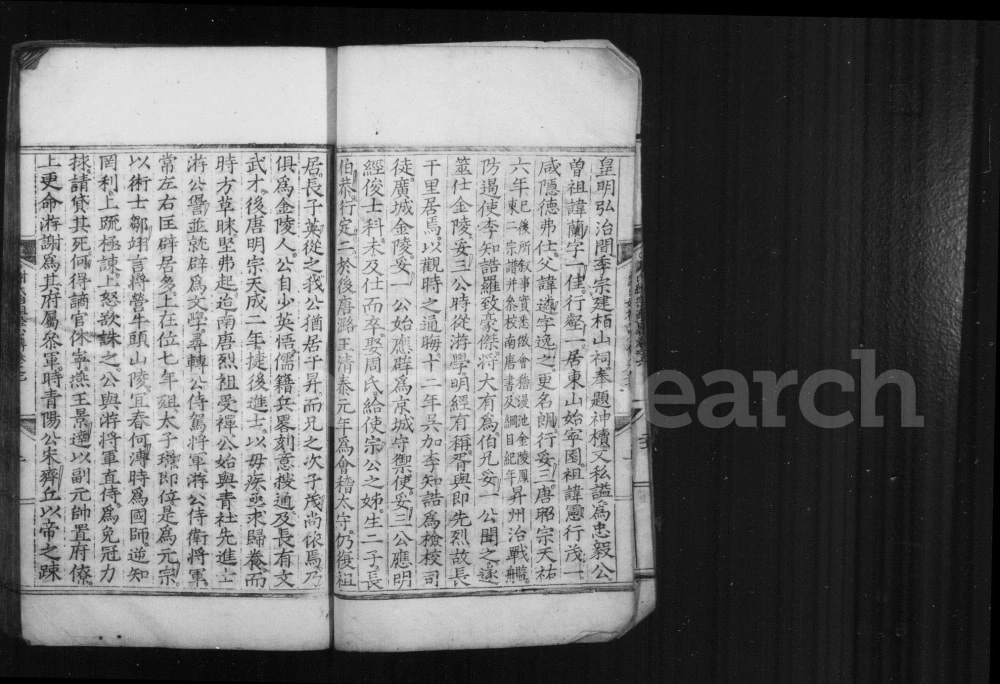 皇明弘治間季宗建栢山祠奉題神櫝文私謚為忠毅公
曾祖諱蘭字一佳行壑一居東山始宰園祖諱憲行茂一
咸隱德弗仕父諱遠字逸之更名朗行妥三唐昭宗天祐
六年己巳後所叙事實悉徵會稽漫池金陵鳳
東二宗譜并条校南唐書及綱目紀年
昇州治戰艦
防遏使李知誥羅致豪傑將大有為伯兄妥一公聞之遂
筮仕金陵妥三公時從游學明經有稱胥與即先烈故長
干里居焉以觀時之通晦十二年吳加李知誥為檢校司
徒廣城金陵妥一公始應辟為京城守禦使妥三公應明
經俊士科未及仕而卒娶周氏給使宗公之姊生二子長
伯恭行定二於後唐潞王清泰元年為會稽太守仍復祖
居長子英從之我公猶居于昇而兄之次子茂尚依焉乃
俱為金陵人公自少英悟儒籍兵畧刻意按通及長有文
武才後唐明宗天成二年捷後進士以母疾亟求歸養而
時方草昧堅弗起迨南唐烈祖受禪公始與青社先進士
游公譽並就辟為文學尋轉公侍駕將軍游公侍衛將軍
常左右匡辟居多上在位七年殂太子璟即位是為元宗
以術士鄒翊言將營牛頭山陵宜春何溥時為國師逆知
罔利上疏極諫上怒欲誅之公與游將軍直侍為免冠力
捄請貸其死何得謫官休寧燕王景達以副元帥置府僚
上更命游謝為其府屬叅軍時青陽公宋齊丘以帝之踈
Search